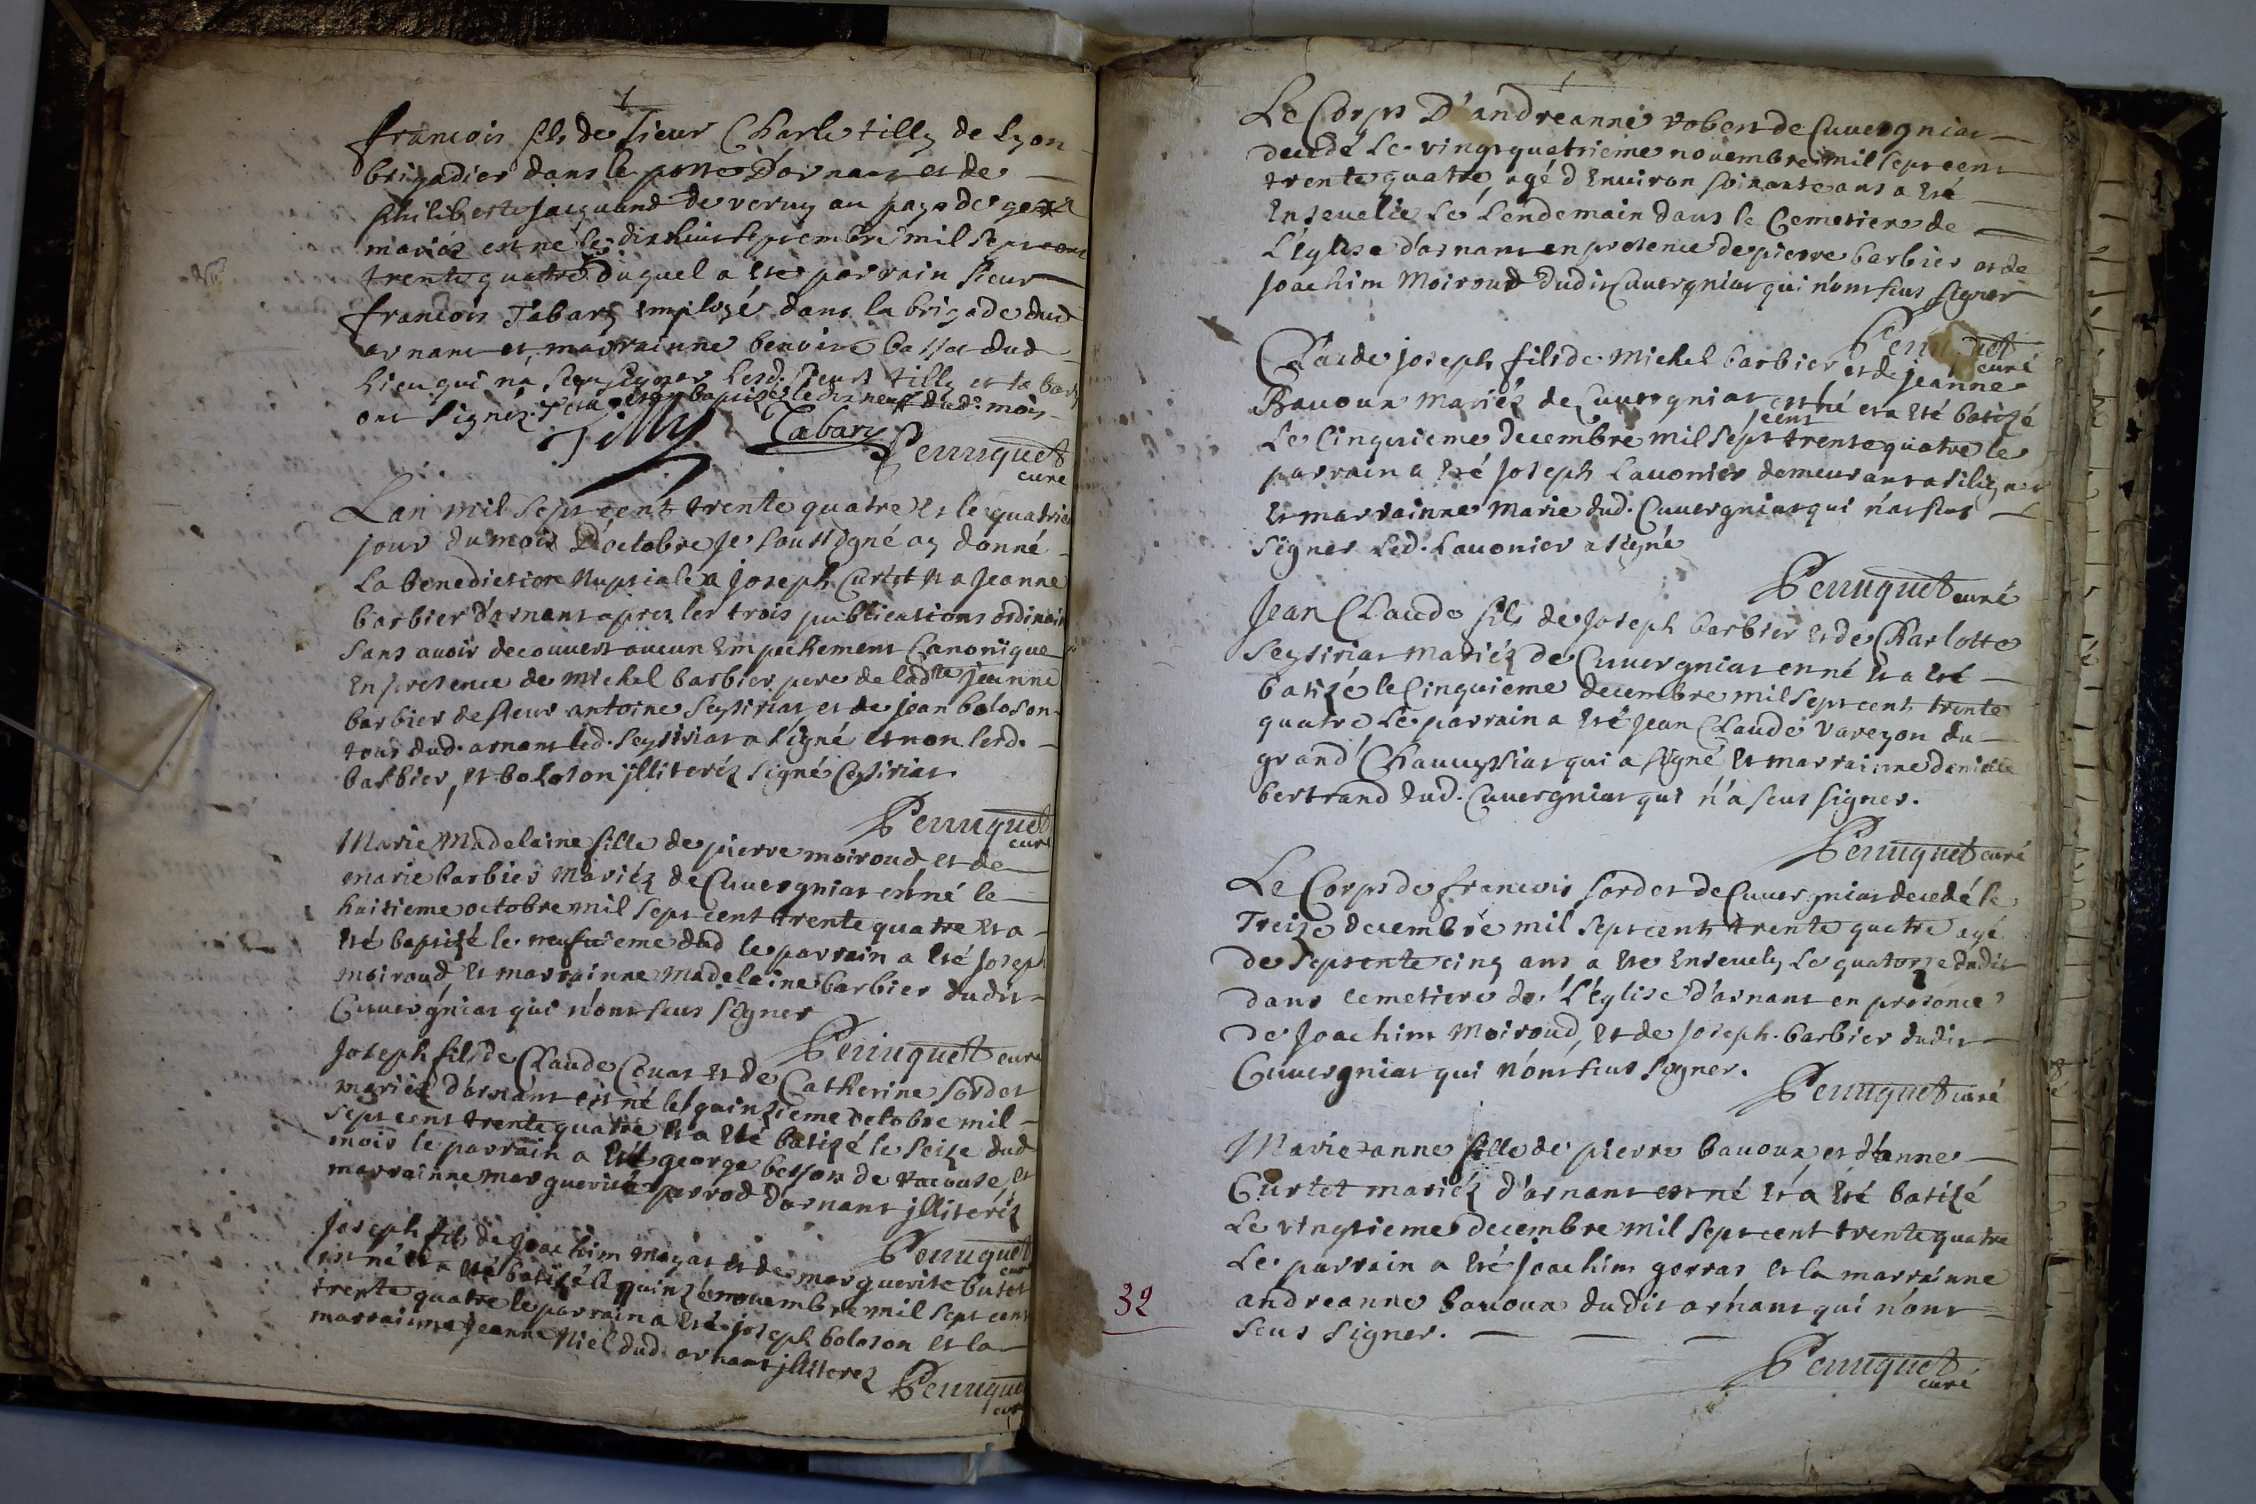 francois fils de Sieur Charle tilly de Lyon
brigadier dans le poste D'ornant et de
philiberte jacquand de verny au pays de gex
mariéz est né le dixhuit septembre mil sept cent
trente quatre duquel a ete parrain sieur
francois Tabary employé dans la brigade dud
arnant et marrainne benoite dud
Lieu qui na sceu signer lesd. sieurs tilly et tabary
ont signéz et a eté baptizé le dix neuf dud. mois
Tilly Tabary Perruquet
curé
Lan mil sept cent trente quatre et le quatrie
jour du mois D'octobre Je soussigné ay donné
La benediction Nuptiale a joseph Curtet et a Jeanne
barbier d'arnant apres les trois publications ordinair
sans avoir decouvert aucun Empechement Canonique
En presence de michel barbier pere de ladte jeanne
barbier de sieur antoine Seyssiriat et de jean boloson
tous dud. arnant led. Seyssiriat a signé et non lesd.
barbier, et boloson jlliteréz signé Ceysiriat
Perruquet
curé
Marie Madelaine fille de pierre moiroud et de
marie barbier mariéz de Cuvergniat est né le
huitieme octobre mil sept cent trente quatre et a
eté baptizé le neufvieme dud le parrain a eté Joseph
moiroud, et marrainne Madelaine barbier dudit
Cuvergniat qui n'ont sceus signer
Perruquet curé
Joseph fils de Claude Couat et de Catherine Sordet
mariéz d'arnant est né le quinzieme octobre mil
sept cent trente quatre et a eté batizé le seize dud
mois le parrain a eté george besson de vacouse, et
marrainne marguerite perrod d'arnant jlliteréz
Perruquet
cur
Joseph fils de joachim et de marguerite
est né et a eté batizé le quinze novembre mil sept cent
trente quatre le parrain a eté joseph boloson et la
marrainne jeanne Niel dud. arnant jlliterez
Perruquet
cur
Le Corps D'andréanne robert de Cuvergniat
decedé Le vingt quatrieme novembre mil sept cent
trente quatre, agé d'Environ soixante ans a eté
Ensevelie Le Lendemain dans le Cemetiere de
L'église d'arnant en presence de pierre barbier et de
Joachim Moiroud dudit Cuvergniat qui n'ont sceus signer
Perruquet
curé
Claude joseph fils de Michel barbier et de jeanne
Bavoux mariéz de Cuvergniat est né et a eté batizé
cent
Le Cinquieme decembre mil sept trente quatre le
parrain a eté Joseph Lavonier demeurant a
et marrainne Marie dud. Cuvergniat qui n'at sceus
signer Led. Lavonier a signé
Perruquet curé
Jean Claude fils de Joseph barbier et de Charlotte
Seyssiriat mariéz de Cuvergniat en né et a eté
batizé le Cinquieme decembre mil sept cent trente
quatre Le parrain a eté Jean Claude Vareyon du
grand Chavagniat qui a signé et marrainne danielle
bertrand dud. Cuvergniat qui n'a sceus signer.
Perruquet curé
Le Corps de francois Sordet de Cuvergniat decedé le
Treize decembre mil sept cents trente quatre agé
de septente cinq ans a ete Ensevely Le quatorze dudit
dans cemetiere de L'église d'arnant en presence
de Joachim Moiroud, et de Joseph barbier dudit
Cuvergniat qui n'ont sceus signer.
Perruquet curé
Marie anne fille de pierre bavoux et d'anne
Curtet mariéz d'arnant est né et a eté batizé
Le vingtieme decembre mil sept cent trente quatre
Le parrain a eté joachim gorras et la marrainne
andreanne bavoux dudit arnant qui n'ont
sceus signer.
Perruquet
curé
32